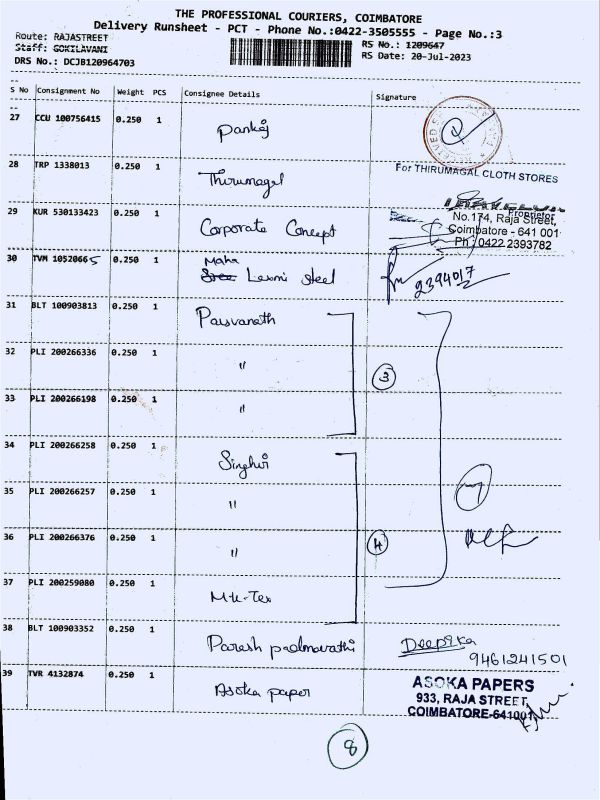 THE PROFESSIONAL COURIERS, COIMBATORE
Delivery Runsheet - PCT - Phone No.:0422-3505555 - Page No.:3
Route: RAJASTREET
RS No.: 1209647
Staff: GOKILAVANI
RS Date: 20-Jul-2023
DRS No.: DCJB120964703
S No Consignment No Weight PCS Consignee Details Signature
27 CCU 100756415 0.250 1 Pankaj
28 TRP 1338013 0.250 1 Thirumagal
For THIRUMAGAL CLOTH STORES
Proprietor
29 KUR 530133423 0.250 1 Corporate Concept
No.174, Raja Street,
Coimbatore - 641 001
Ph : 0422 2393782
30 TVM 10520665 0.250 1 Maha Laxmi steel
2394017
31 BLT 100903813 0.250 1 Parsvanath
32 PLI 200266336 0.250 1 "
3
33 PLI 200266198 0.250 1 "
34 PLI 200266258 0.250 1 Singhvi
35 PLI 200266257 0.250 1 "
7
36 PLI 200266376 0.250 1 "
4
37 PLI 200259080 0.250 1 M.K-Tex
38 BLT 100903352 0.250 1 Paresh padmavathi Deepika
9461241501
39 TVR 4132874 0.250 1 Asoka paper
ASOKA PAPERS
933, RAJA STREET,
COIMBATORE-641001
8